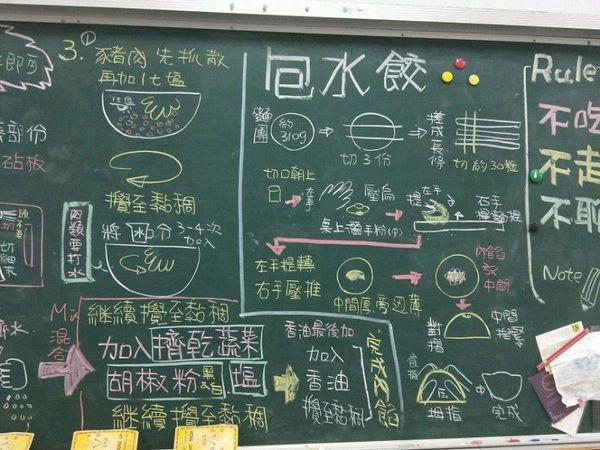 3. ① 豬肉先抓散
再加1t塩
攪至黏稠
肉類要打水
將水分3-4次
加入
繼續攪至黏稠
Mix
混合
加入擠乾蔬菜
胡椒粉 黑&白 塩
繼續攪至黏稠
香油最後加
加入
香油
攪至黏稠
包水餃
麵團
約
310g
切3份
搓成長條
切約30粒
切口朝上
左手
壓扁
桌上灑手粉(中)
左手
提
右手
左手提轉
右手壓推
中間厚旁边薄
內餡
放
中間
對摺
中間
捏緊
食指
拇指
完成
部份
砧板
Rule
不吃
不走
不聊
Note